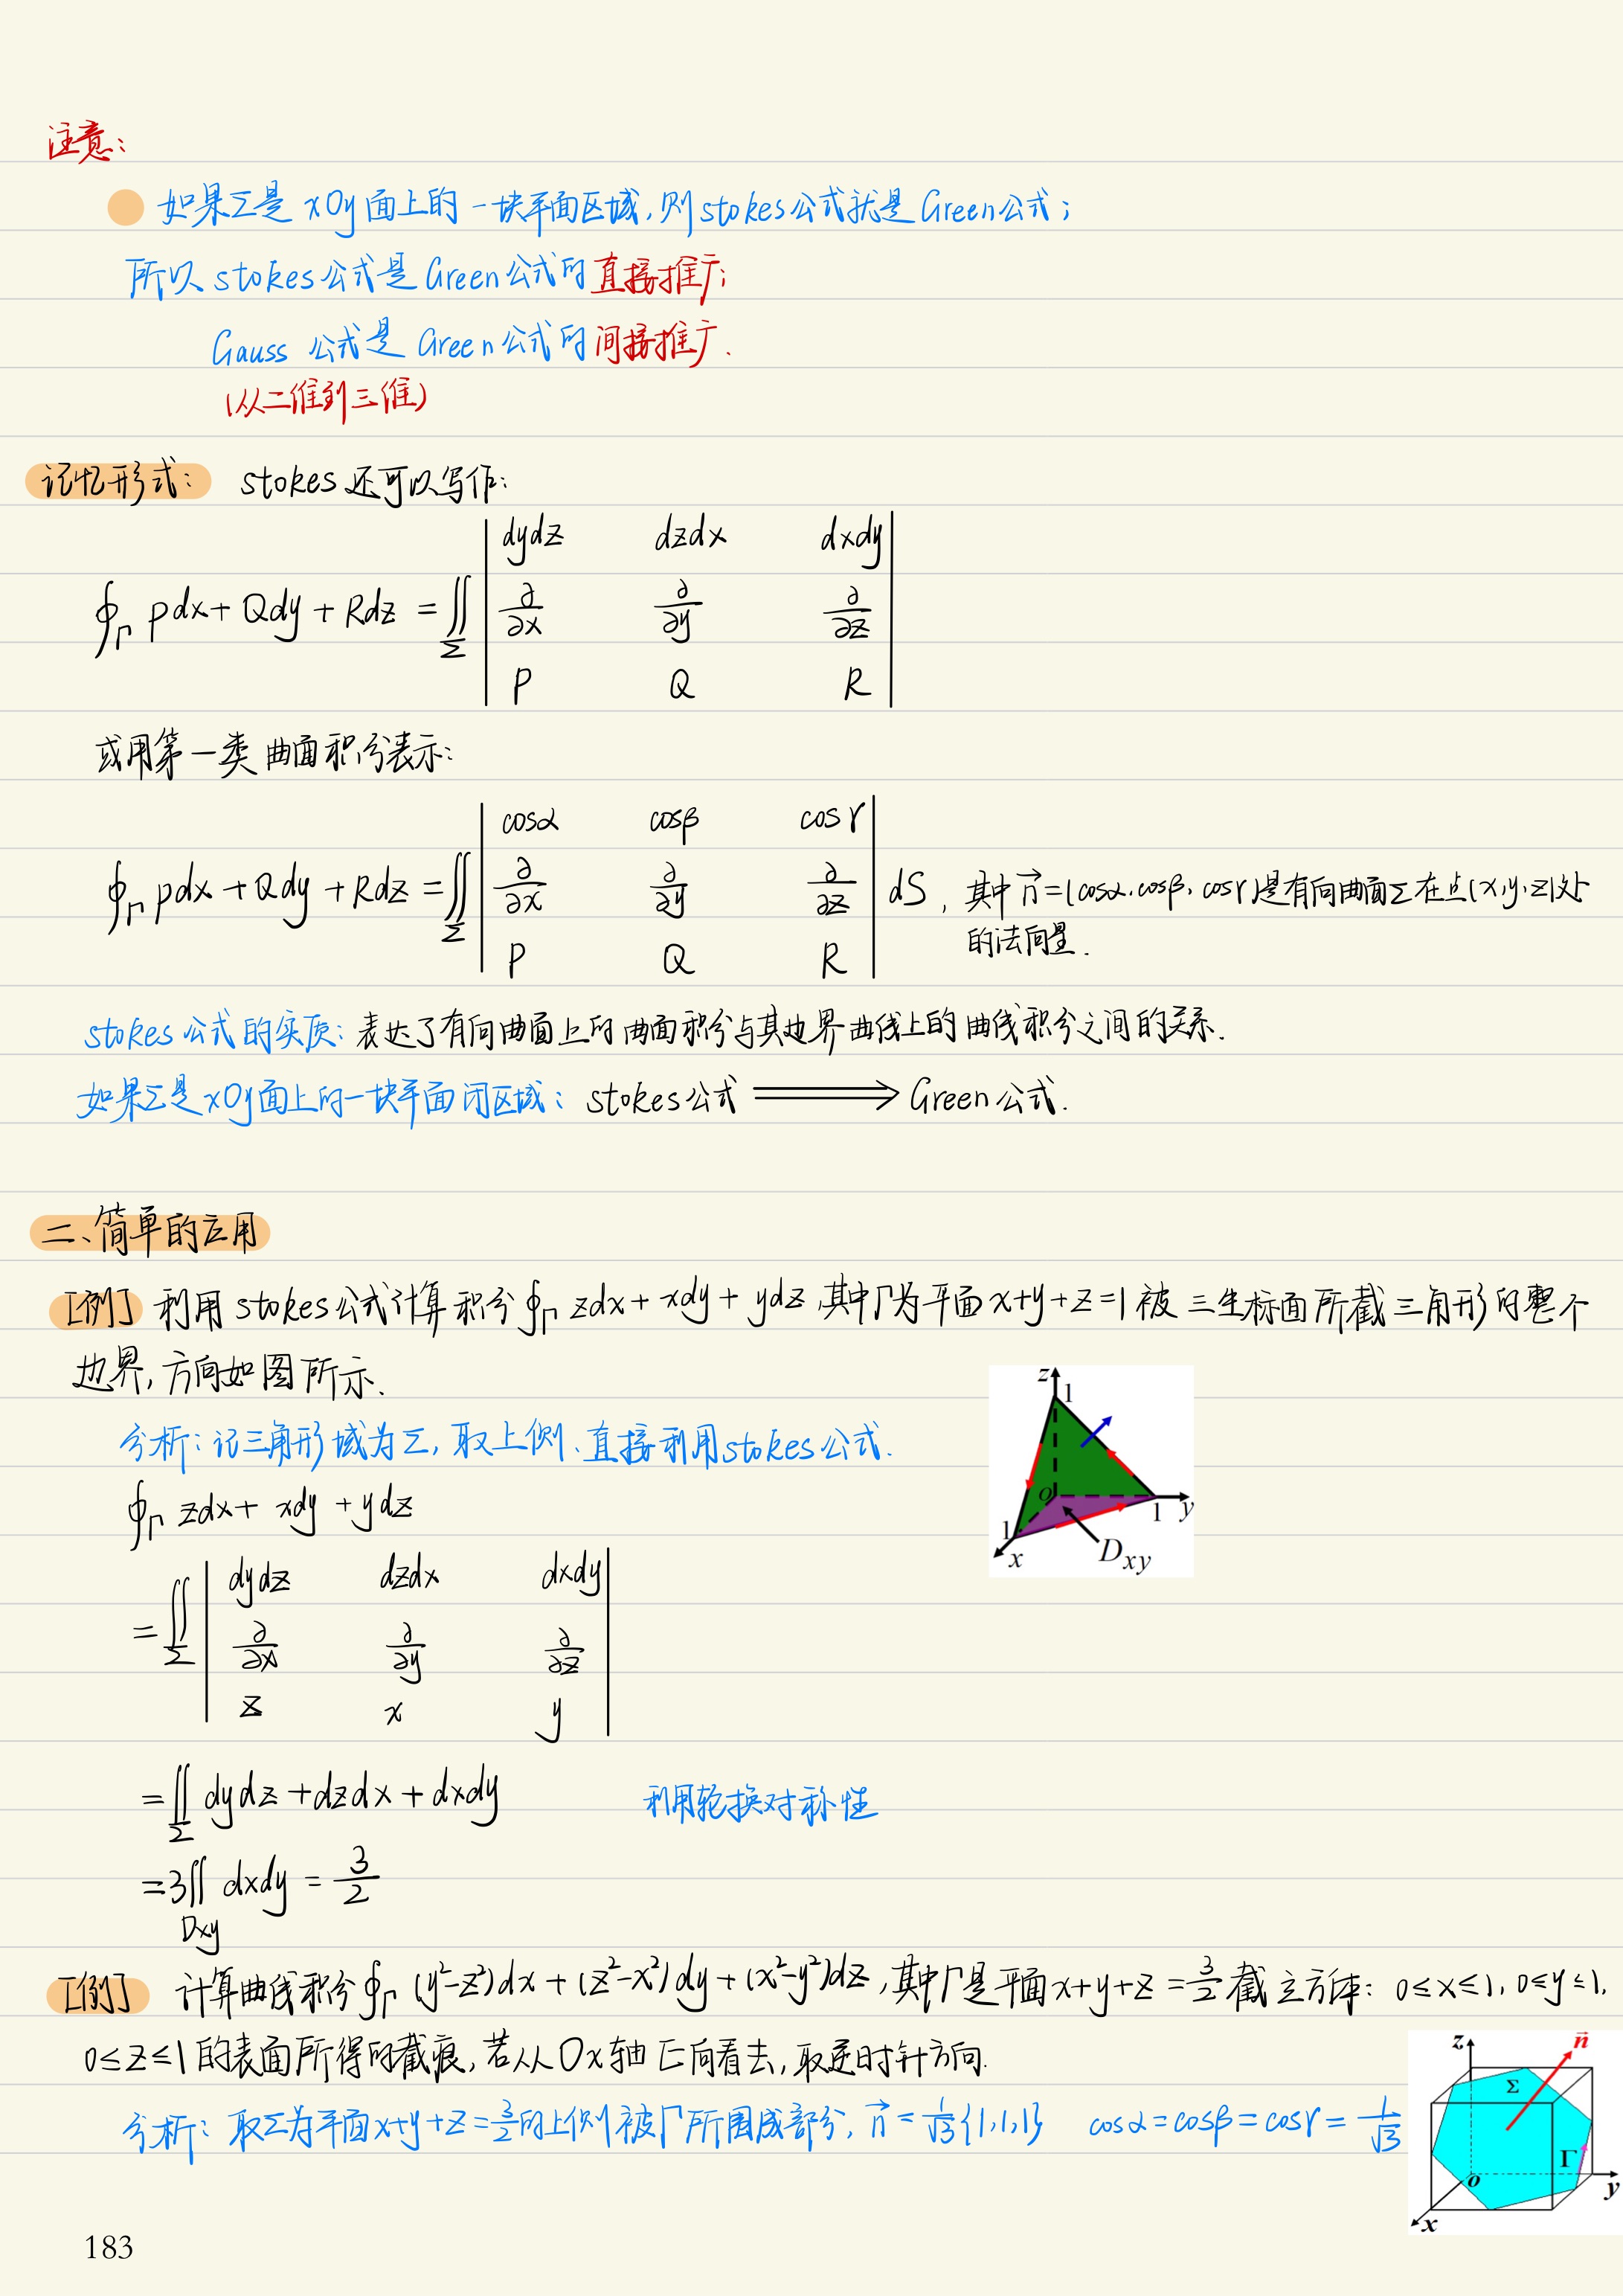 注意:
如果Σ是 xOy面上的一块平面区域,则stokes公式就是Green公式;
所以 stokes公式是 Green公式的直接推广;
Gauss 公式是 Green公式的间接推广.
(从二维到三维)
记忆形式: stokes还可以写作:
dydz dzdx dxdy
∮Γ Pdx+Qdy+Rdz = ∬Σ ∂/∂x ∂/∂y ∂/∂z
P Q R
或用第一类曲面积分表示:
cosα cosβ cosγ
∮Γ Pdx+Qdy+Rdz = ∬Σ ∂/∂x ∂/∂y ∂/∂z dS, 其中 n⃗=(cosα,cosβ,cosγ)是有向曲面Σ在点(x,y,z)处
P Q R 的法向量.
stokes公式的实质: 表达了有向曲面上的曲面积分与其边界曲线上的曲线积分之间的关系.
如果Σ是xOy面上的一块平面闭区域: stokes公式 ⟹ Green公式.
二、简单的应用
[例] 利用 stokes公式计算积分∮Γ zdx+xdy+ydz,其中Γ为平面x+y+z=1被三坐标面所截三角形的整个
边界,方向如图所示.
z 1
o 1 y
1 x Dxy
分析: 记三角形域为Σ, 取上侧.直接利用stokes公式.
∮Γ zdx+ xdy +ydz
dydz dzdx dxdy
=∬Σ ∂/∂x ∂/∂y ∂/∂z
z x y
=∬Σ dydz+dzdx+dxdy 利用轮换对称性
=3∬Dxy dxdy = 3/2
[例] 计算曲线积分∮Γ (y²-z²)dx+(z²-x²)dy+(x²-y²)dz,其中Γ是平面x+y+z=3/2截立方体: 0≤x≤1, 0≤y≤1,
0≤z≤1的表面所得的截痕,若从Ox轴正向看去,取逆时针方向.
分析: 取Σ为平面x+y+z=3/2的上侧被Γ所围成部分, n⃗=1/√3{1,1,1} cosα=cosβ=cosγ=1/√3
z n⃗
Σ
Γ
o y
x
183